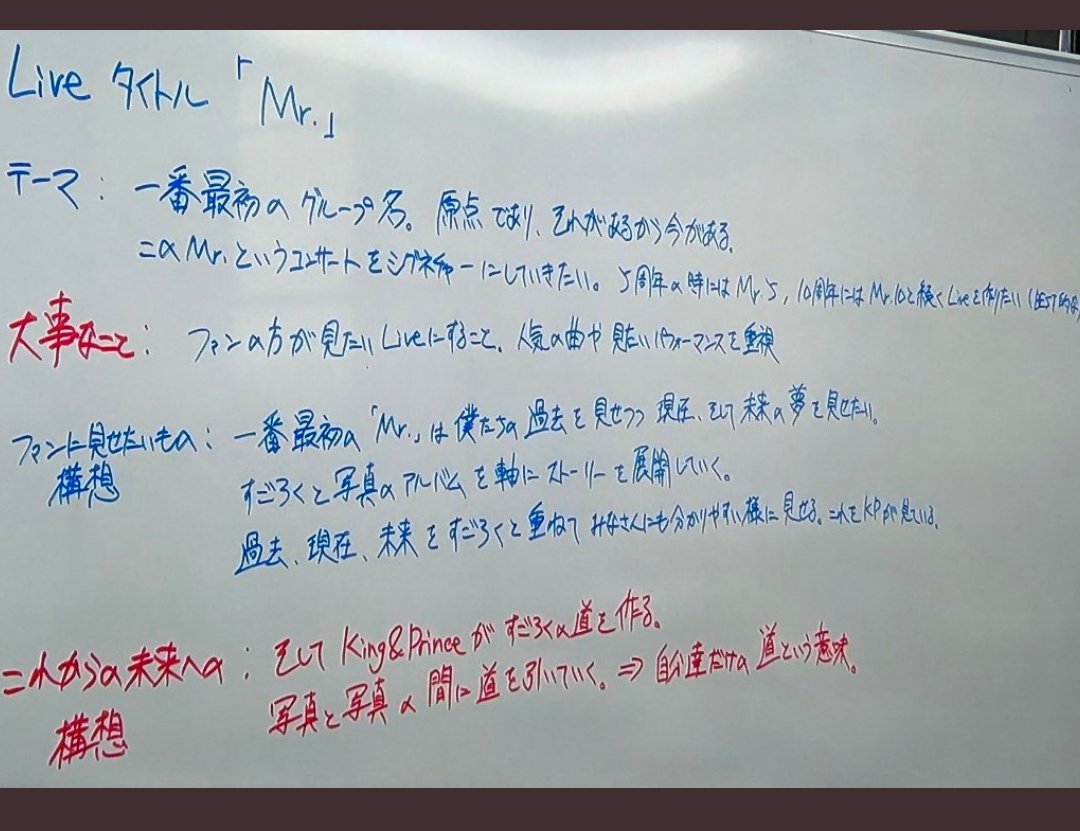 Live タイトル 「Mr.」
テーマ : 一番最初のグループ名。原点であり、それがあるから今がある。
このMr.というコンサートをシグネチャーにしていきたい。5周年の時にはMr.5, 10周年にはMr.10と続くLiveを作りたい
大事なこと : ファンの方が見たいLiveにすること。人気の曲や見たいパフォーマンスを重視
ファンに見せたいもの : 一番最初の「Mr.」は僕たちの過去を見せつつ現在、そして未来の夢を見せたい。
構想 すごろくと写真のアルバムを軸にストーリーを展開していく。
過去、現在、未来をすごろくと重ねてみなさんにも分かりやすい様に見せる。これをKPが見ている。
これからの未来への : そしてKing&Princeがすごろくの道を作る。
構想 写真と写真の間に道を引いていく。⇒ 自分達だけの道という意味。